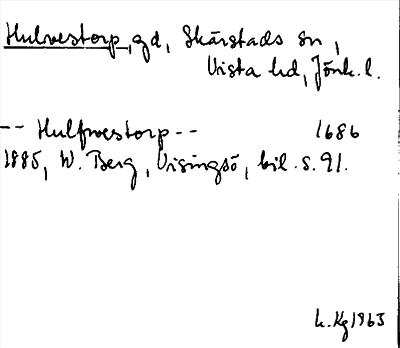 Hulvestorp, gd, Skärstads sn,
Vista hd, Jönk. l.
-- Hulfwestorp -- 1686
1885, W. Berg, Visingsö, bil. s. 91.
h. Kg 1963